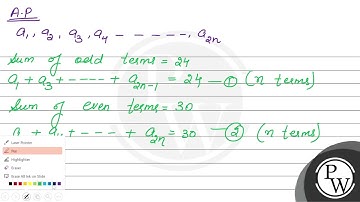 A.P
a₁, a₂, a₃, a₄ ------, a₂ₙ
Sum of odd terms = 24
a₁ + a₃ + ---- + a₂ₙ₋₁ = 24 — ① (n terms)
Sum of even terms = 30
+ ---- + a₂ₙ = 30 — ② (n terms)
Laser Pointer
Pen
Highlighter
Eraser
Erase All Ink on Slide
P
W